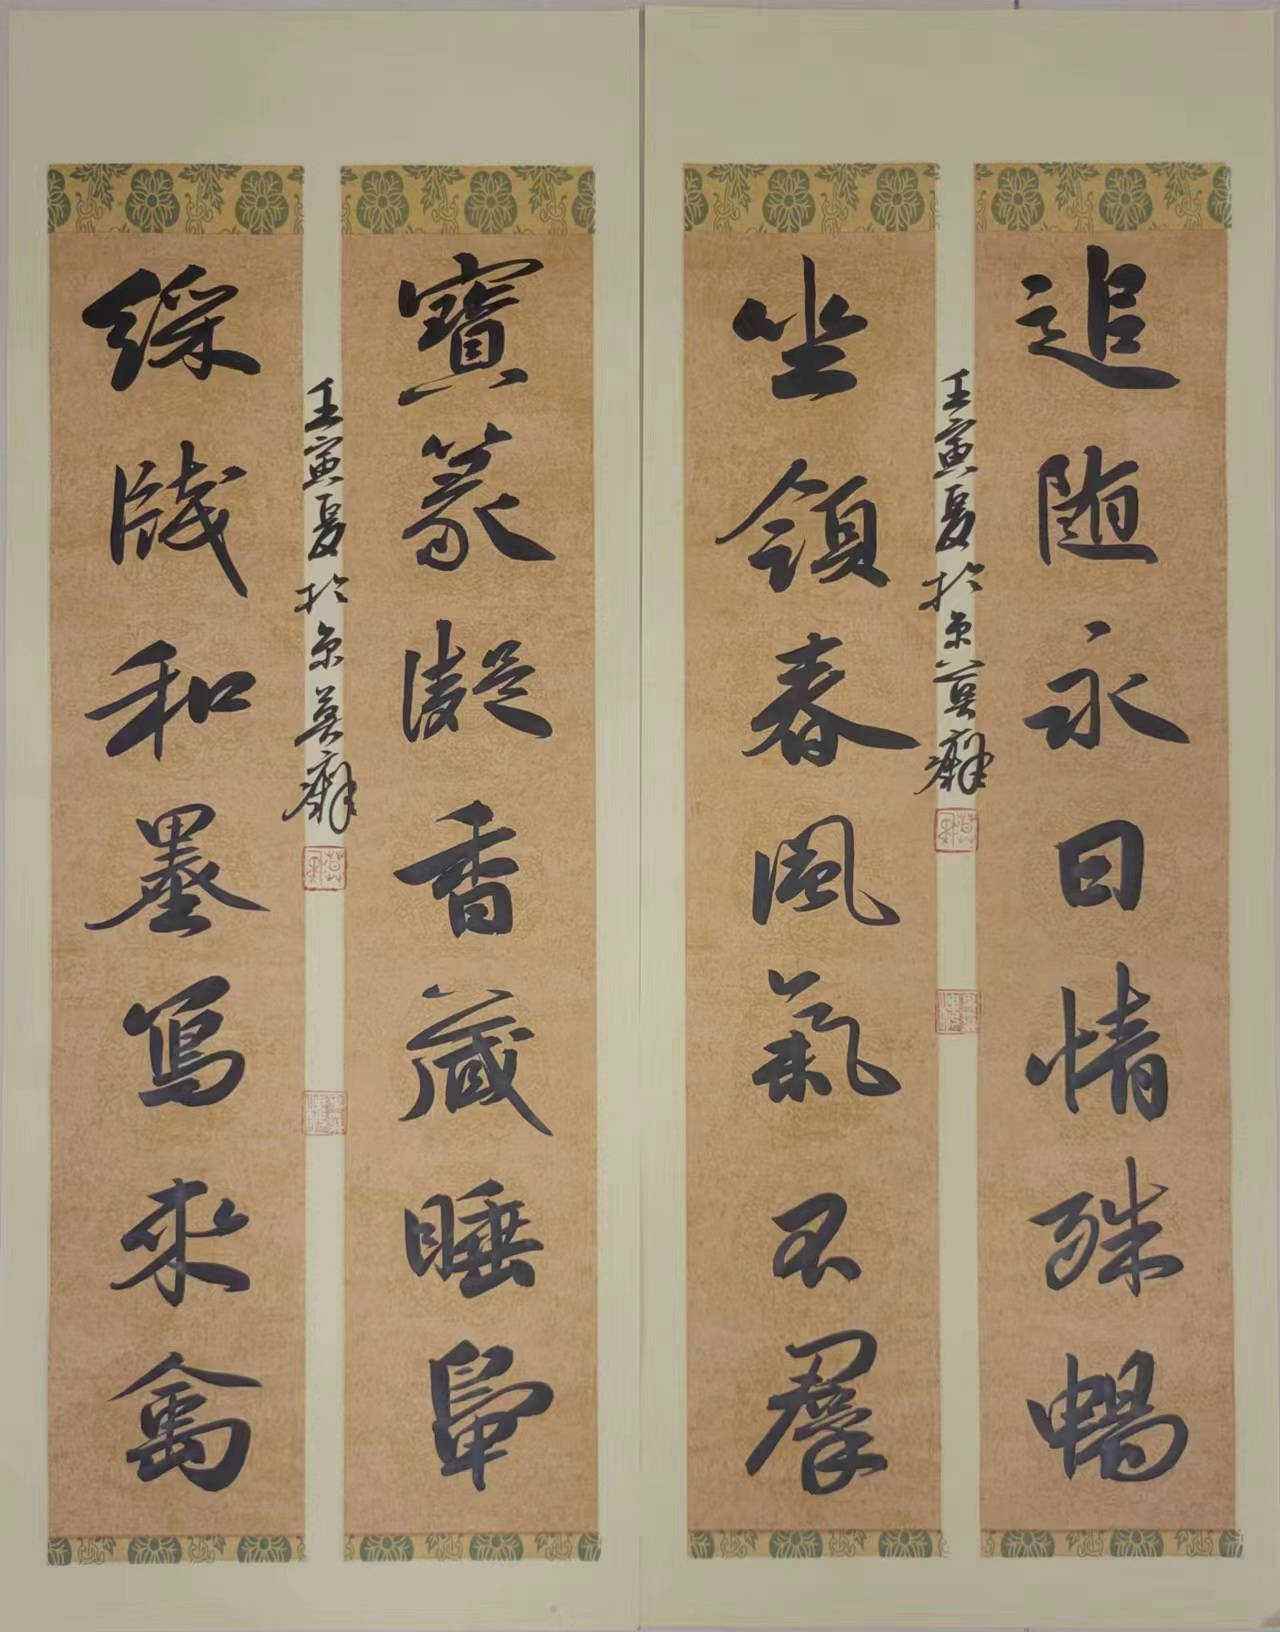 追随永日情殊暢
坐領春風氣不羣
壬寅夏於京莫癖
寶篆凝香藏睡鴨
綵牋和墨寫來禽
壬寅夏於京莫癖